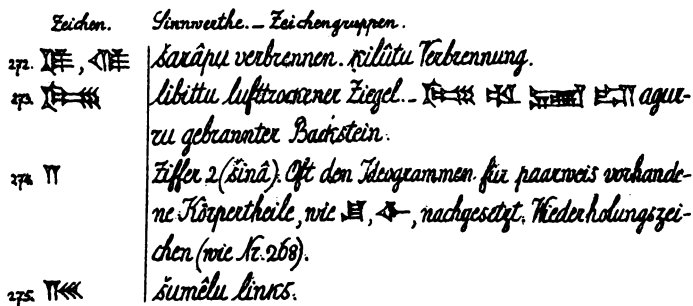 Zeichen. Sinnwerthe. – Zeichengruppen.
272. 𒉈, 𒄀𒉈 šarâpu verbrennen. ḳilûtu Verbrennung.
273. libittu lufttrockener Ziegel. – agur-
ru gebrannter Backstein.
274. 𒈫 Ziffer 2 (šinâ). Oft den Ideogrammen für paarweis vorhande-
ne Körpertheile, wie 𒅆, nachgesetzt. Wiederholungszei-
chen (wie Nr. 268).
275. šumêlu links.